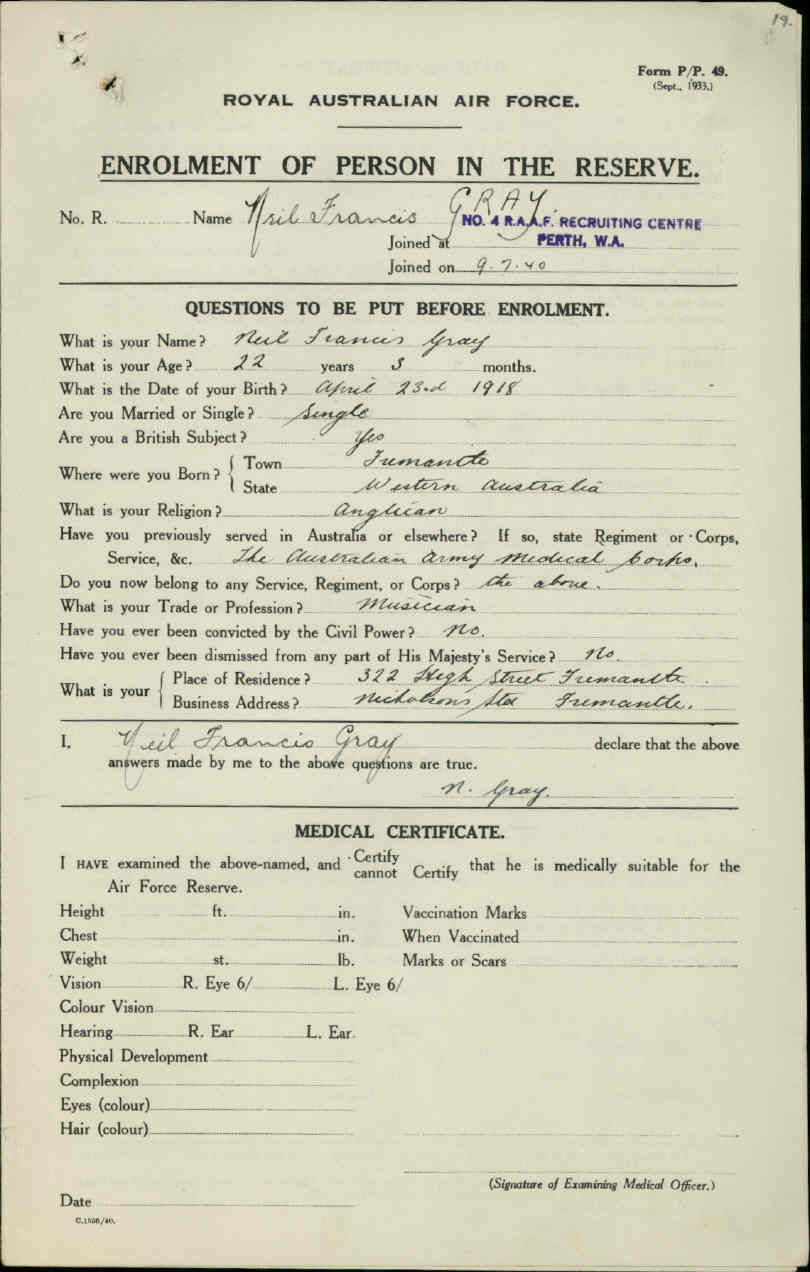 19.
Form P/P. 49.
(Sept., 1933.)
ROYAL AUSTRALIAN AIR FORCE.
ENROLMENT OF PERSON IN THE RESERVE.
No. R. Name Neil Francis GRAY.
NO. 4 R.A.A.F. RECRUITING CENTRE
Joined at PERTH, W.A.
Joined on 9.7.40
QUESTIONS TO BE PUT BEFORE ENROLMENT.
What is your Name? Neil Francis Gray
What is your Age? 22 years 3 months.
What is the Date of your Birth? April 23rd 1918
Are you Married or Single? Single
Are you a British Subject? Yes
Where were you Born? Town Fremantle
State Western Australia
What is your Religion? Anglican
Have you previously served in Australia or elsewhere? If so, state Regiment or Corps,
Service, &c. The Australian Army Medical Corps.
Do you now belong to any Service, Regiment, or Corps? the above.
What is your Trade or Profession? Musician
Have you ever been convicted by the Civil Power? No.
Have you ever been dismissed from any part of His Majesty's Service? No.
What is your Place of Residence? 322 High Street Fremantle.
Business Address? Nicholsons Ltd Fremantle.
I, Neil Francis Gray declare that the above
answers made by me to the above questions are true.
N. Gray.
MEDICAL CERTIFICATE.
I HAVE examined the above-named, and Certify
cannot Certify that he is medically suitable for the
Air Force Reserve.
Height ft. in. Vaccination Marks
Chest in. When Vaccinated
Weight st. lb. Marks or Scars
Vision R. Eye 6/ L. Eye 6/
Colour Vision
Hearing R. Ear L. Ear.
Physical Development
Complexion
Eyes (colour)
Hair (colour)
(Signature of Examining Medical Officer.)
Date
C.1566/40.